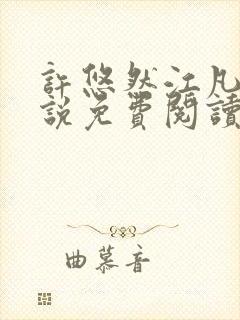 許悠然江凡
說免費閱讀
曲慕音